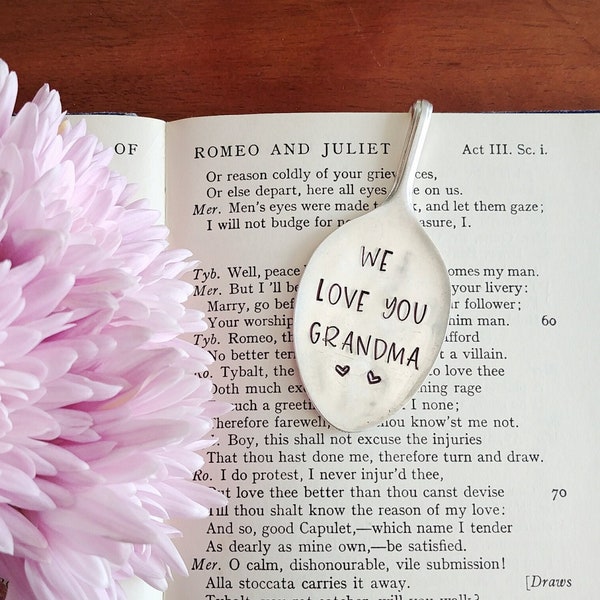 OF
ROMEO AND JULIET
Act III. Sc. i.
Or reason coldly of your
Or else depart, here all eyes on us.
Mer. Men's eyes were made and let them gaze;
I will not budge for I.
Tyb. Well, peace my man.
Mer. But I'll your livery:
Marry, go follower;
Your worship man. 60
Tyb. Romeo, the
No better a villain.
Ro. Tybalt, the to love thee
Doth much rage
such a I none;
Therefore farewell, thou know'st me not.
Boy, this shall not excuse the injuries
That thou hast done me, therefore turn and draw.
Ro. I do protest, I never injur'd thee,
But love thee better than thou canst devise 70
Till thou shalt know the reason of my love:
And so, good Capulet,—which name I tender
As dearly as mine own,—be satisfied.
Mer. O calm, dishonourable, vile submission!
Alla stoccata carries it away. [Draws
WE
LOVE YOU
GRANDMA